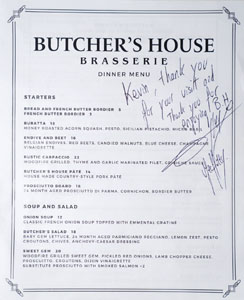 BUTCHER'S HOUSE
BRASSERIE
DINNER MENU
Kevin, thank you
for your visit and
thank you for
STARTERS
BREAD AND FRENCH BUTTER BORDIER 5
FRENCH BUTTER BORDIER 3
BURRATA
HONEY ROASTED ACORN SQUASH, PESTO, SICILIAN PISTACHIO, MICRO BASIL
ENDIVE AND BEET 18
BELGIAN ENDIVES, RED BEETS, CANDIED WALNUTS, BLUE CHEESE, CHAMPAGNE
VINAIGRETTE
RUSTIC CARPACCIO
WOODFIRE GRILLED, THYME AND GARLIC MARINATED FILET,
BUTCHER'S HOUSE PÂTÉ
HOUSE MADE COUNTRY-STYLE PORK PÂTÉ
PROSCIUTTO BOARD
24 MONTH AGED PROSCIUTTO DI PARMA, CORNICHON, BORDIER BUTTER
SOUP AND SALAD
ONION SOUP
CLASSIC FRENCH ONION SOUP TOPPED WITH EMMENTAL GRATINE
BUTCHER'S SALAD 18
BABY GEM LETTUCE, 24 MONTH AGED PARMIGIANO REGGIANO, LEMON ZEST, PESTO
CROUTONS, CHIVES, ANCHOVY-CAESAR DRESSING
SWEET GEM 20
WOODFIRE GRILLED SWEET GEM, PICKLED RED ONIONS, LAMB CHOPPER CHEESE,
PROSCIUTTO, CROUTONS, DIJON VINAIGRETTE
SUBSTITUTE PROSCIUTTO WITH SMOKED SALMON +2